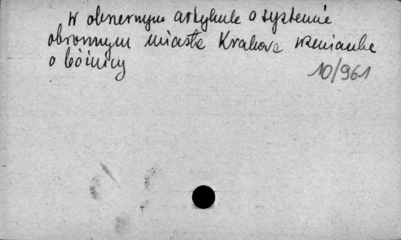 W obszernym artykule o systemie
obronnym miasta Krakowa wzmianka
o bóżnicy
10/961